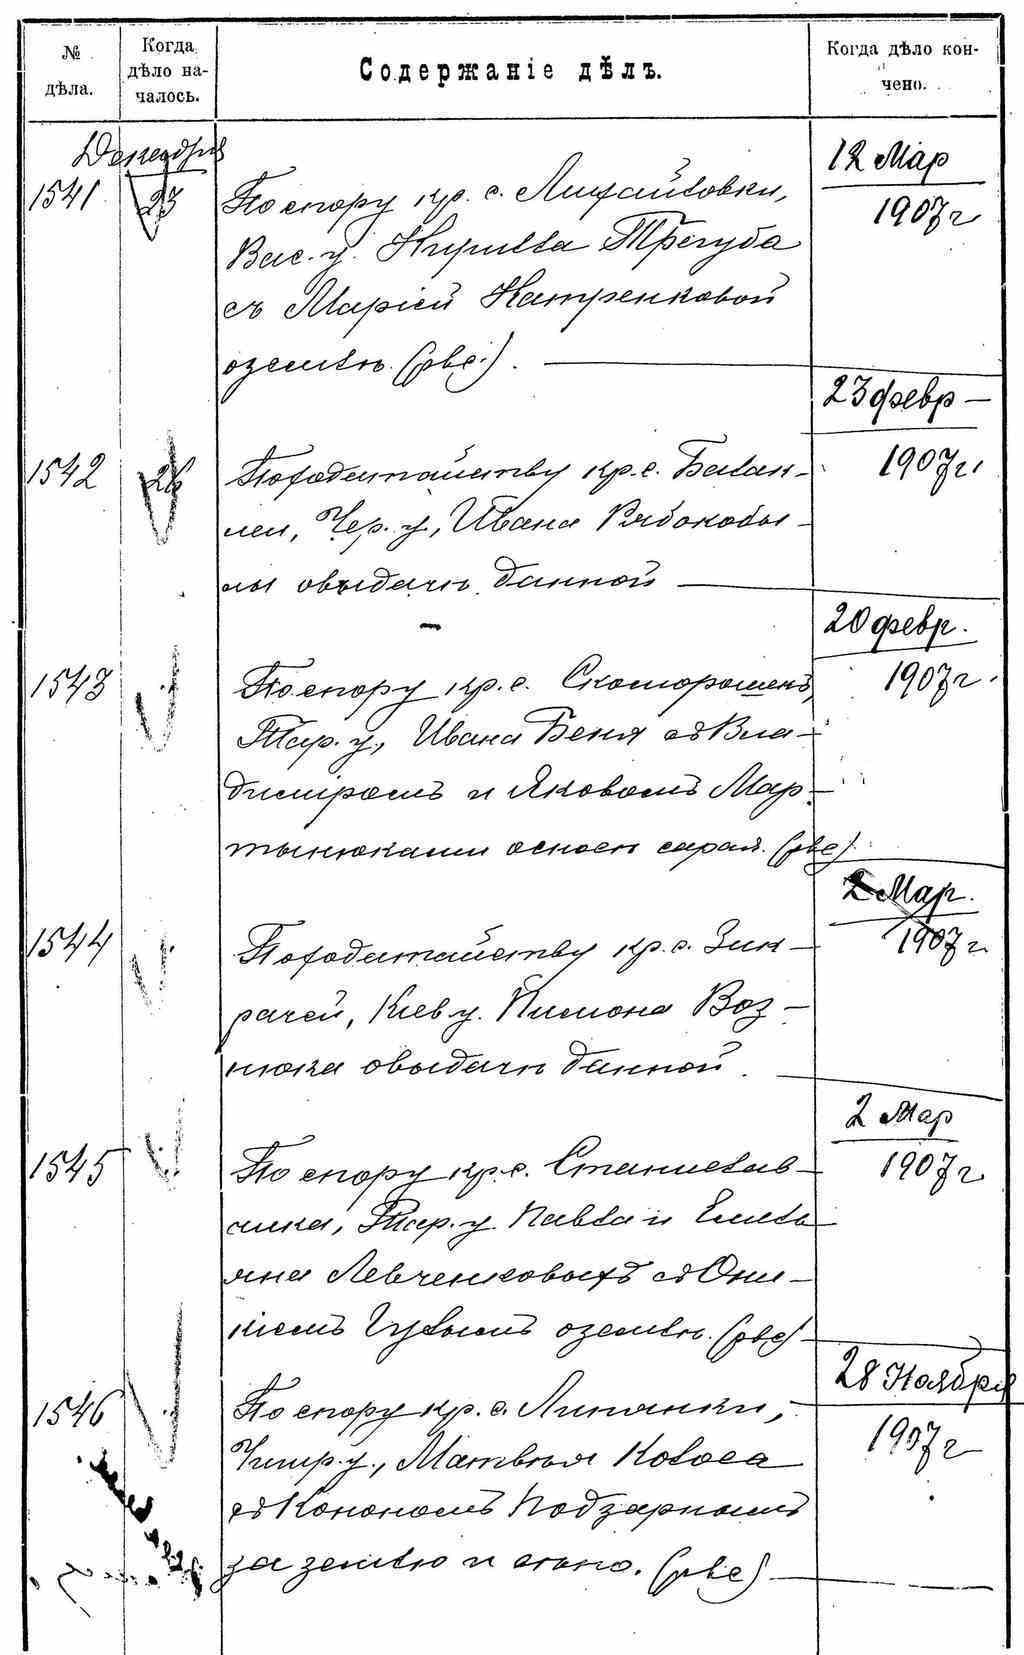 № дѣла.
Когда дѣло началось.
Содержаніе дѣлъ.
Когда дѣло кончено.
Декабря
1541
23
По спору кр. с.
Вас. у. Кирилла Трегуба
съ Маріей
о землѣ. (рвс.)
12 Мар
1907 г
1542
26
По ходатайству кр. с. Баклак-
леи, Чер. у., Ивана Рябокобы-
лы о выдачѣ данной
23 февр
1907 г.
1543
По спору кр. с. Скоморошекъ,
Тар. у., Ивана Беня съ Вла-
диміромъ и Яковомъ Мар-
тынюками о сносѣ сарая. (рвс)
20 февр.
1907 г.
1544
По ходатайству кр. с. Зик-
рачей, Кіев. у. Пимона Воз-
нюка о выдачѣ данной.
2 Мар.
1907 г.
1545
По спору кр. с. Станислав-
чика, Тар. у. Павла и Емель
яна Левченковыхъ съ Они-
кіемъ о землѣ. (рвс)
2 Мар
1907 г
1546
По спору кр. с. Липянки,
Чигир. у., Матвѣя Колоса
съ Конономъ Подзарнымъ
за землю и сѣно. (рвс)
28 Ноября
1907 г